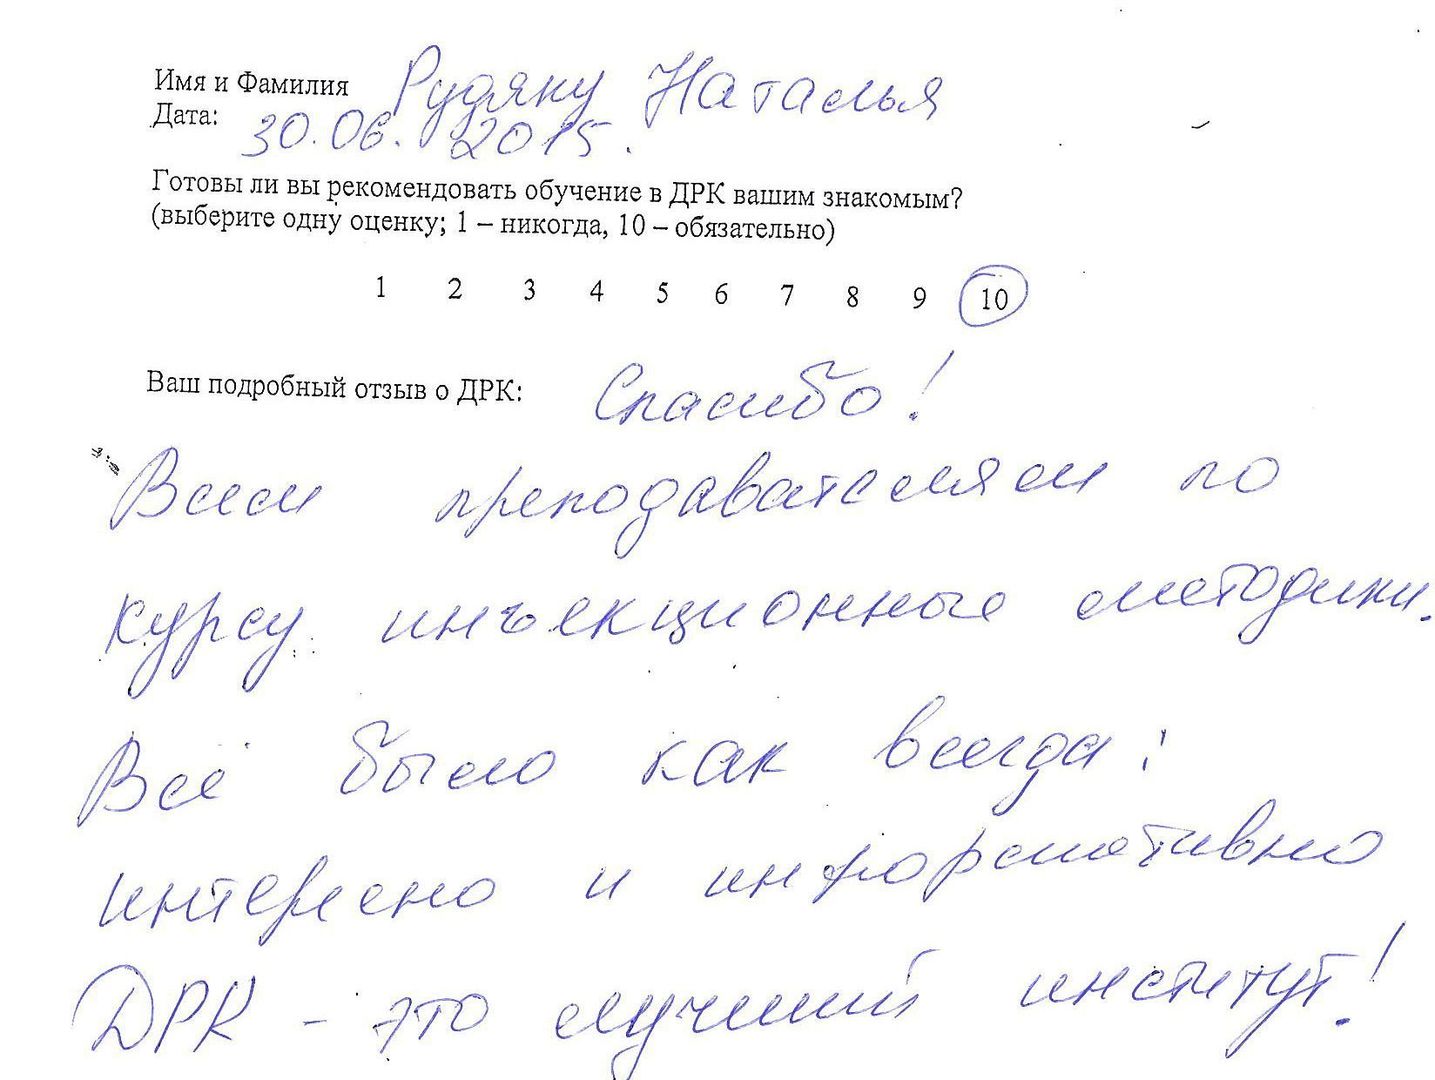 Имя и Фамилия Рудяку Наталья
Дата: 30.06.2015.
Готовы ли вы рекомендовать обучение в ДРК вашим знакомым?
(выберите одну оценку; 1 – никогда, 10 – обязательно)
1 2 3 4 5 6 7 8 9 10
Ваш подробный отзыв о ДРК: Спасибо!
Всем преподавателям по
курсу инъекционные методики.
Всё было как всегда:
интересно и информативно
ДРК - это лучший институт!